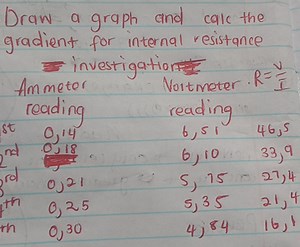 Draw a graph and calc the
gradient for internal resistance
investigation
Ammeter Voltmeter R = V/I
reading reading
st 0,14 6,51 46,5
nd 0,18 6,10 33,9
rd 0,21 5,75 27,4
th 0,25 5,35 21,4
th 0,30 4,84 16,1